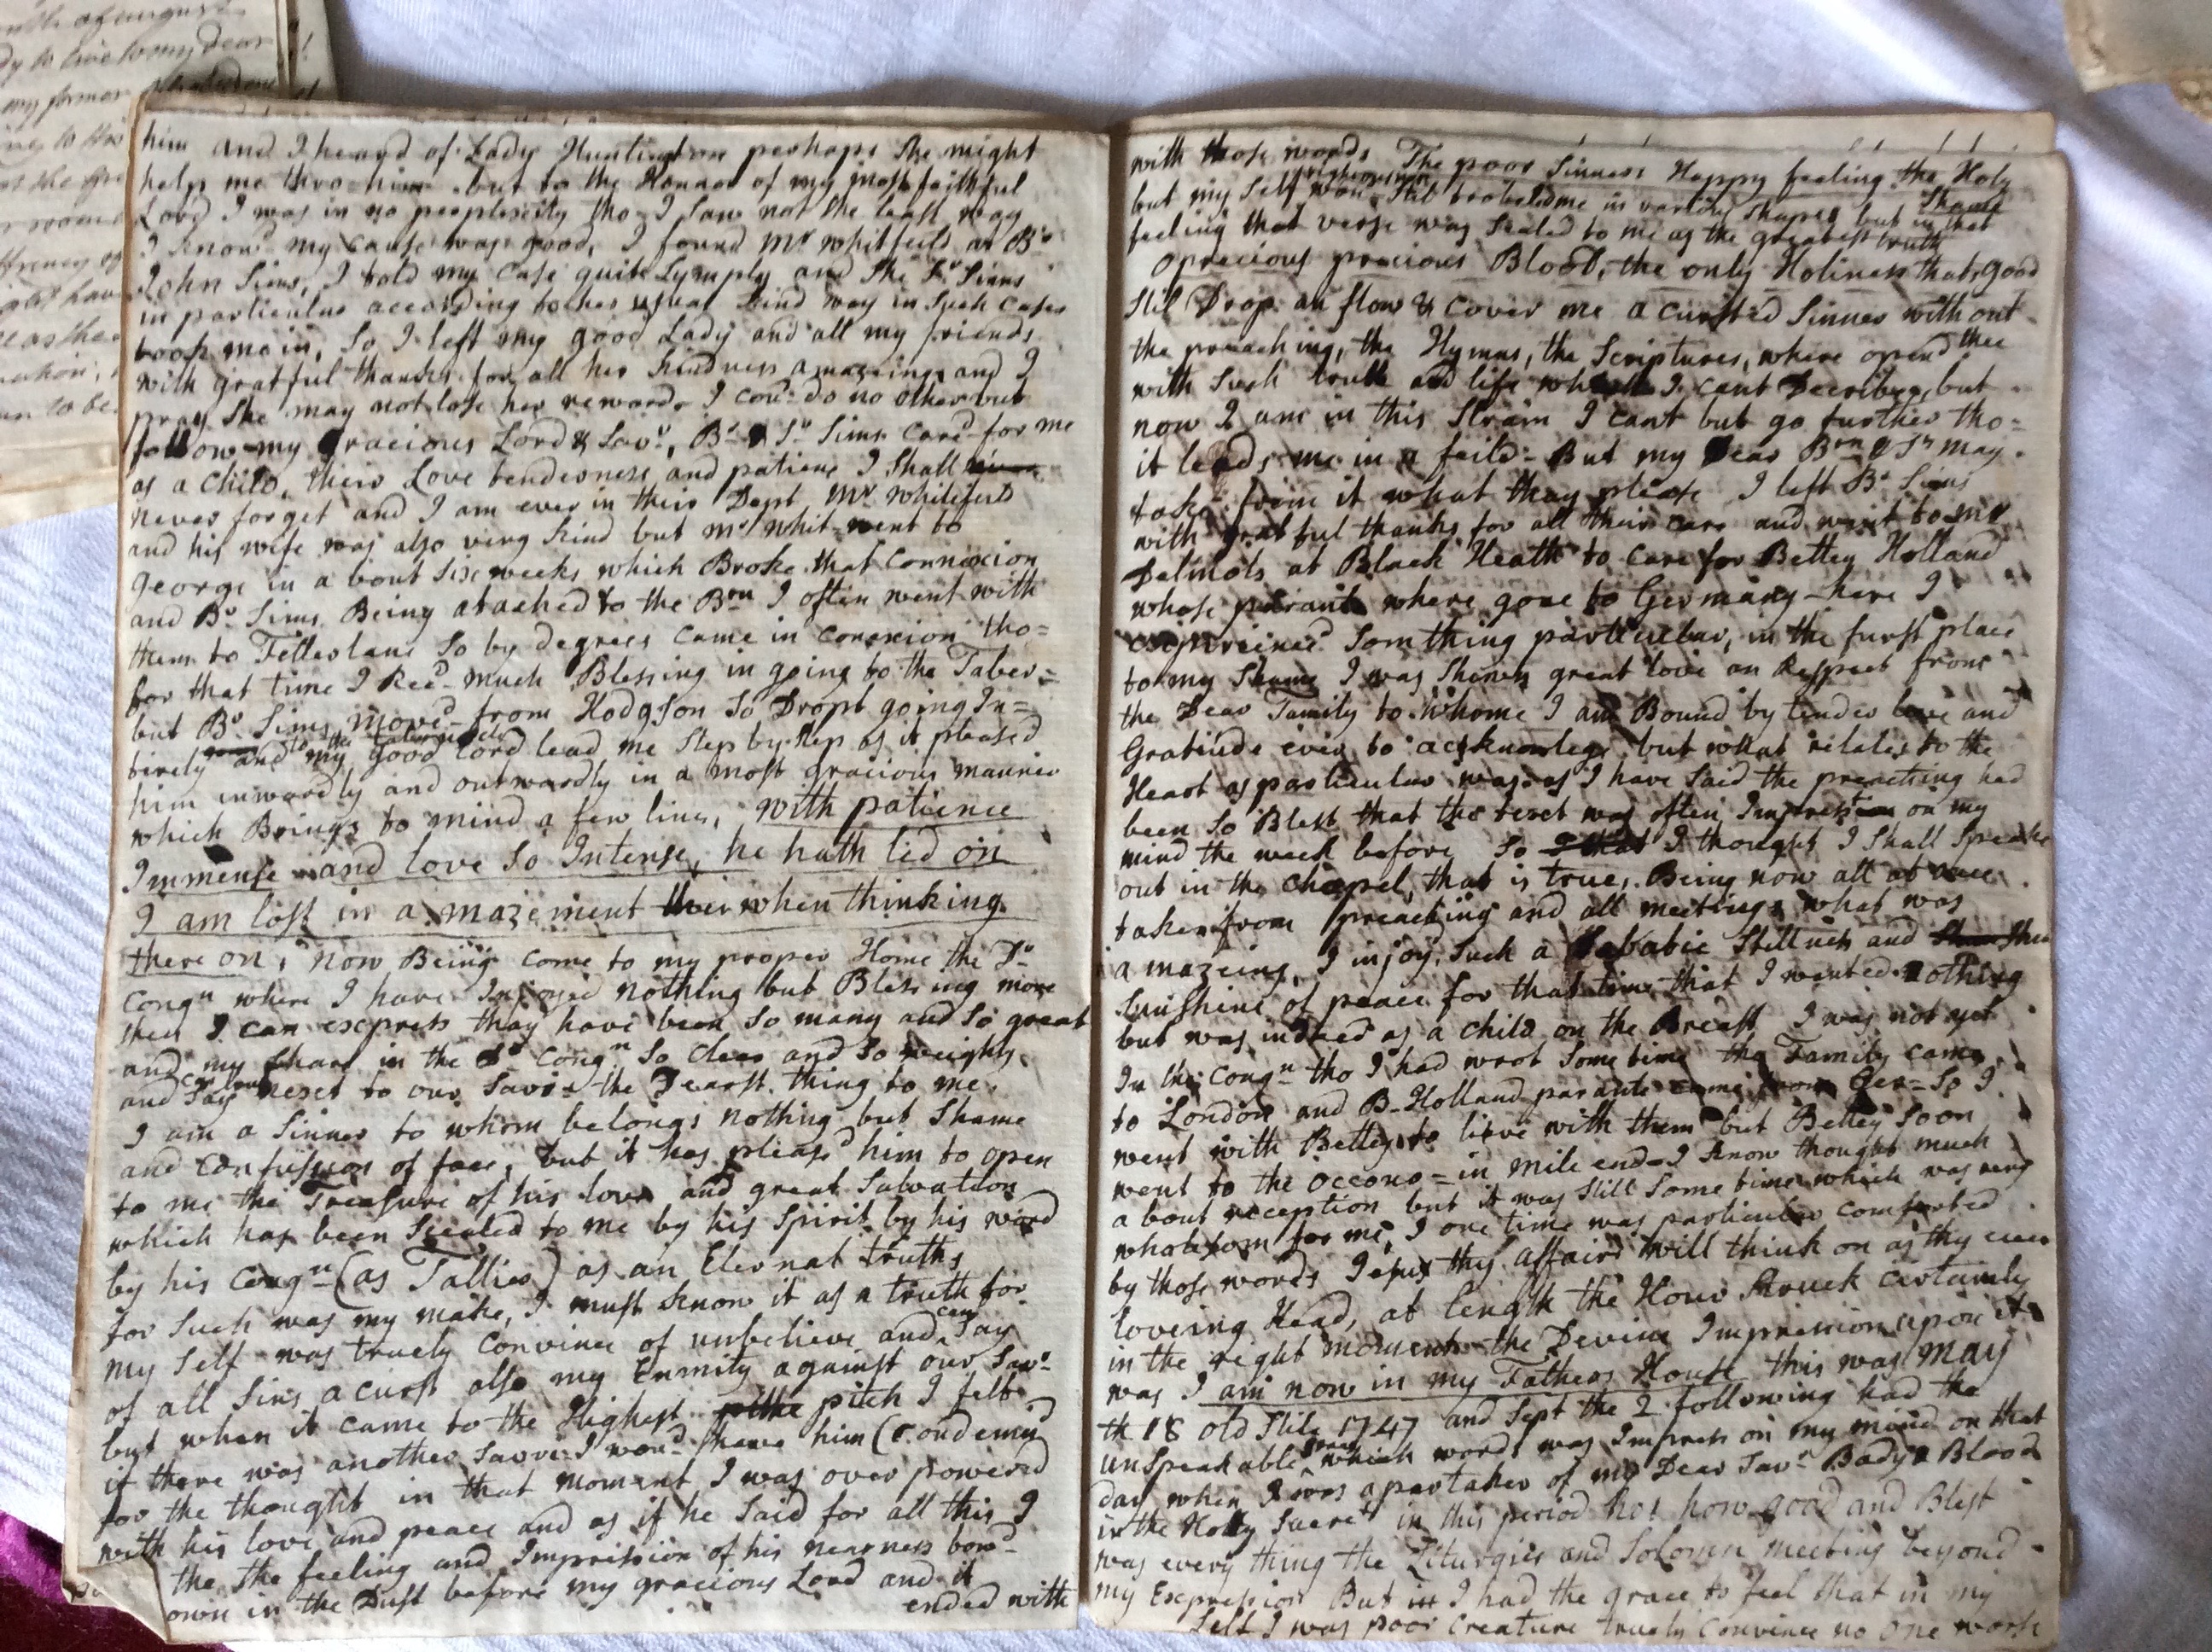 him and I heard of Lady Huntington perhaps She might
help me thro him but to the Honnor of my most faithful
Lord I was in no peeplexcity tho I Saw not the least way
I know'd my cause was good, I found Mr Whitfeild at Br
John Sims, I told my Case quite Symply and She Sr Sims
in particular according to her usual kind way in Such Cases
took me in, So I left my good Lady and all my friends
with gratful thanks for all her kindness amazeing and I
pray She may not lose her reward I cou'd do no other but
follow my Gracious Lord & Savr, Br & Sr Sims Card for me
as a Child, their Love tenderness and patiene I Shall
never forget and I am ever in their Dept Mr Whitefeld
and his wife was also very kind but Mr Whit= went to
George in a bout Six weeks which Broke that Connexcion
and Br Sims Being atached to the Brn I often went with
them to Fetterlane So by degrees Came in Conexion tho=
for that time I Recd much Blessing in going to the Taber=
but Br Sims moved from Hodgson So Dropt going In=
tirely to the Tabernacle and my good lord lead me Step by Step as it pleased
him inwardly and outwardly in a most gracious manner
which Brings to mind a few lines, with patience
Immense and love So Intense, he hath led on
I am lost in a mazement when thinking
there on, now Being Come to my proper Home the Dr
Congn where I have Injoyed nothing but Blessing more
then I can excpress thay have been So many and So great
and my Share in the Dr Congn So clear and So weighty
and can Say next to our Savr the Dearst thing to me
I am a Sinner to whom belongs nothing but Shame
and Confussion of face, but it has pleasd him to open
to me the Treasure of his love and great Salvation
which has been Seealed to me by his Spirit by his word
by his Congn (as Tallies) as an Eternal truths
for Such was my make, I must know it as a truth for
my Self was truely Convince of unbelieve and can Say
of all Sins a curst also my Enmity against our Savr
but when it came to the Highest pitch I felt
if there was another Savr I woud have him (Condemnd
for the thought in that moment I was over powered
with his love and peace and as if he Said for all this I
the the feeling and Impression of his nearness bowd
own in the Dust before my gracious Lord and it
ended with
with those words The poor Sinners Happy feeling the Holy Shame
but my Self righteousness wou'd Stil trobeled me in various Shapes but in that
feeling that verse was Sealed to me as the greatest truth
O precious precious Blood, the only Holiness thats good
Stil Drop an flow & Cover me a Cursted Sinner without
the preaching, the Hymns, the Scriptures, where opend thee
with Such truth and life which I cant Decribe, but
now I am in this Strain I cant but go further tho=
it leads me in a feild - But my Dear Brn & Srs may
take from it what thay please I left Br Sims
with gratful thanks for all their care and went to Mr
Delmots at Black Heath to Care for Bettey Holland
whose parants where gone to Germany - here I
excpireince'd Somthing particular, in the furst place
to my Shame I was Shewn great love an Respect from
the Dear Family to whome I am Bound by tender love and
Gratitude ever to acknowlege but what relates to the
Heart as particular was as I have Said the preaching had
been So Blest that the texct was often Imprest on my
mind the week before So I thought I Shall Speake
out in the Chapel, that is true, Being now all at once
taken from preaching and all meetings what was
a mazeing, I injoyd Such a Sabatic Stillness and
Sunshine of peace for that time that I wanted nothing
but was indeed as a Child on the Breast I was not yet
In the Congn tho I had wrot Some time the Family came
to London and B-Holland parants came from Ger= So I
went with Bettey to live with them but Bettey Soon
went to the Occono= in mile end - I know thought much
a bout reception but it was Still Some time which was very
wholesom for me, I one time was particular comforted
by those words Jesus thy affairs will think on as thy ever
loveing Head, at length the Hour Struck certainly
in the right moment the Devine Impression upon it
was I am now in my Fathers House this was May
th 18 old Stile 1747 and Sept the 2 following had the
unspeakable grace which words was Impress on my mind on that
day when I was a partaker of my Dear Savr Body & Blood
in the Holly Sacret in this period ho! how good and Blest
was every thing the Liturgies and Solomn meeting beyond
my Excpression But I had the grace to feel that in my
Self I was poor Creature truely Convince no one worse